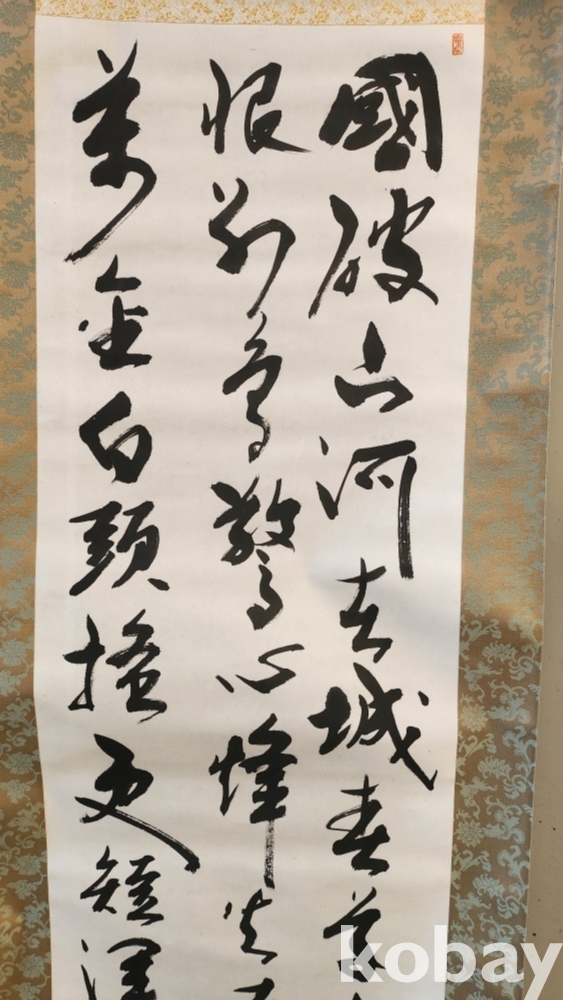 國破山河在城春草
恨別鳥驚心烽火
萬金白頭搔更短渾
kobay